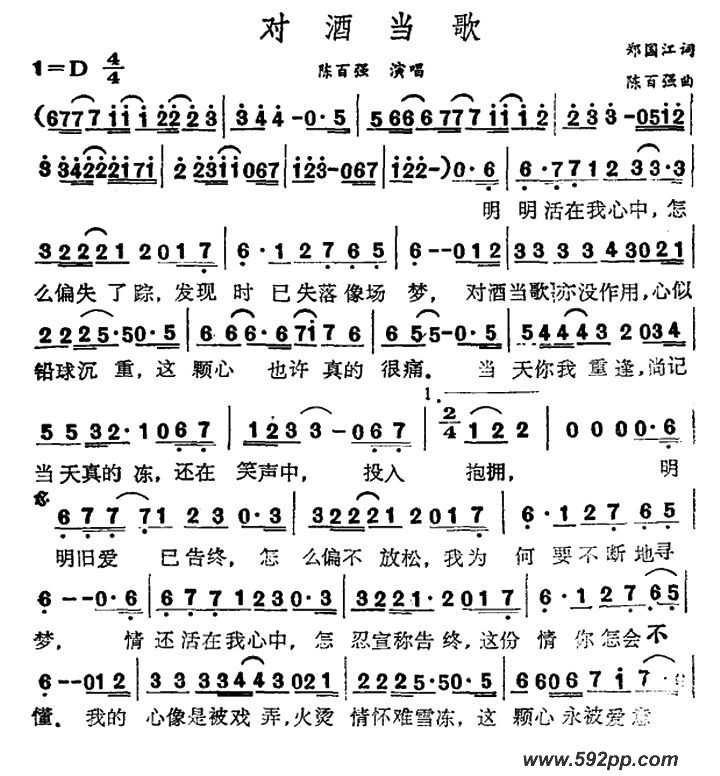 对酒当歌
郑国江词
1=D 4/4 陈百强 演唱
陈百强曲
(6777 1 1 1 2 2 2 3 | 3 4 4 - 0·5 | 5 666 777 1 1 1 2 | 2 3 3 - 0512
3 34222171 | 2 2311067 | 123-067 | 122-) 0·6 | 6·77 12 33·3
明 明活在我心中,怎
32221 2017 | 6·12765 | 6--012 | 33334 43021
么偏失了踪,发现 时已失落像场 梦, 对酒当歌亦没作用,心似
2225·50·5 | 666·6716 | 655-0·5 | 54443 2034
铅球沉重,这 颗心 也许真的 很痛. 当 天你我重逢,尚记
5532·1067 | 1233-067 | 1. 2/4 122 | 0000·6
当天真的冻,还在 笑声中, 投入 抱拥, 明
677 71 230·3 | 32221 2017 | 6·127 65
明旧爱 已告终,怎 么偏不放松,我为 何要不断地寻
6--0·6 | 677 1230·3 | 3221·2017 | 6·127 65
梦, 情 还活在我心中,怎 忍宣称告终,这份 情你怎会不
6--012 | 333443021 | 2225·50·5 | 6606717
懂. 我的 心像是被戏弄,火烫 情怀难雪冻,这 颗心永被爱意
www.592pp.com